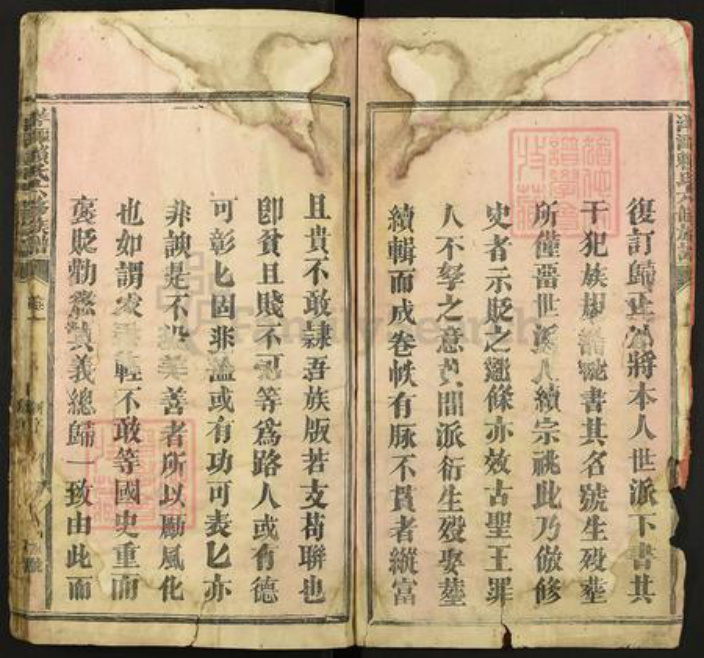 復訂歸正當將本人世派下書其
干犯族規備書其名號生歿葬
所僅畱世派人續宗祧此乃倣修
史者示貶之繩條亦效古聖王罪
人不孥之意其間派衍生歿娶葬
續輯而成卷帙有脈不貫者縱富
且貴不敢隷吾族版若支苟聯也
卽貧且賤不等爲路人或有德
可彰匕固非濫或有功可表匕亦
非諛是不善者所以勵風化
也如謂輕不敢等國史重而
褒貶勸懲其義總歸一致由此而
FamilySearch